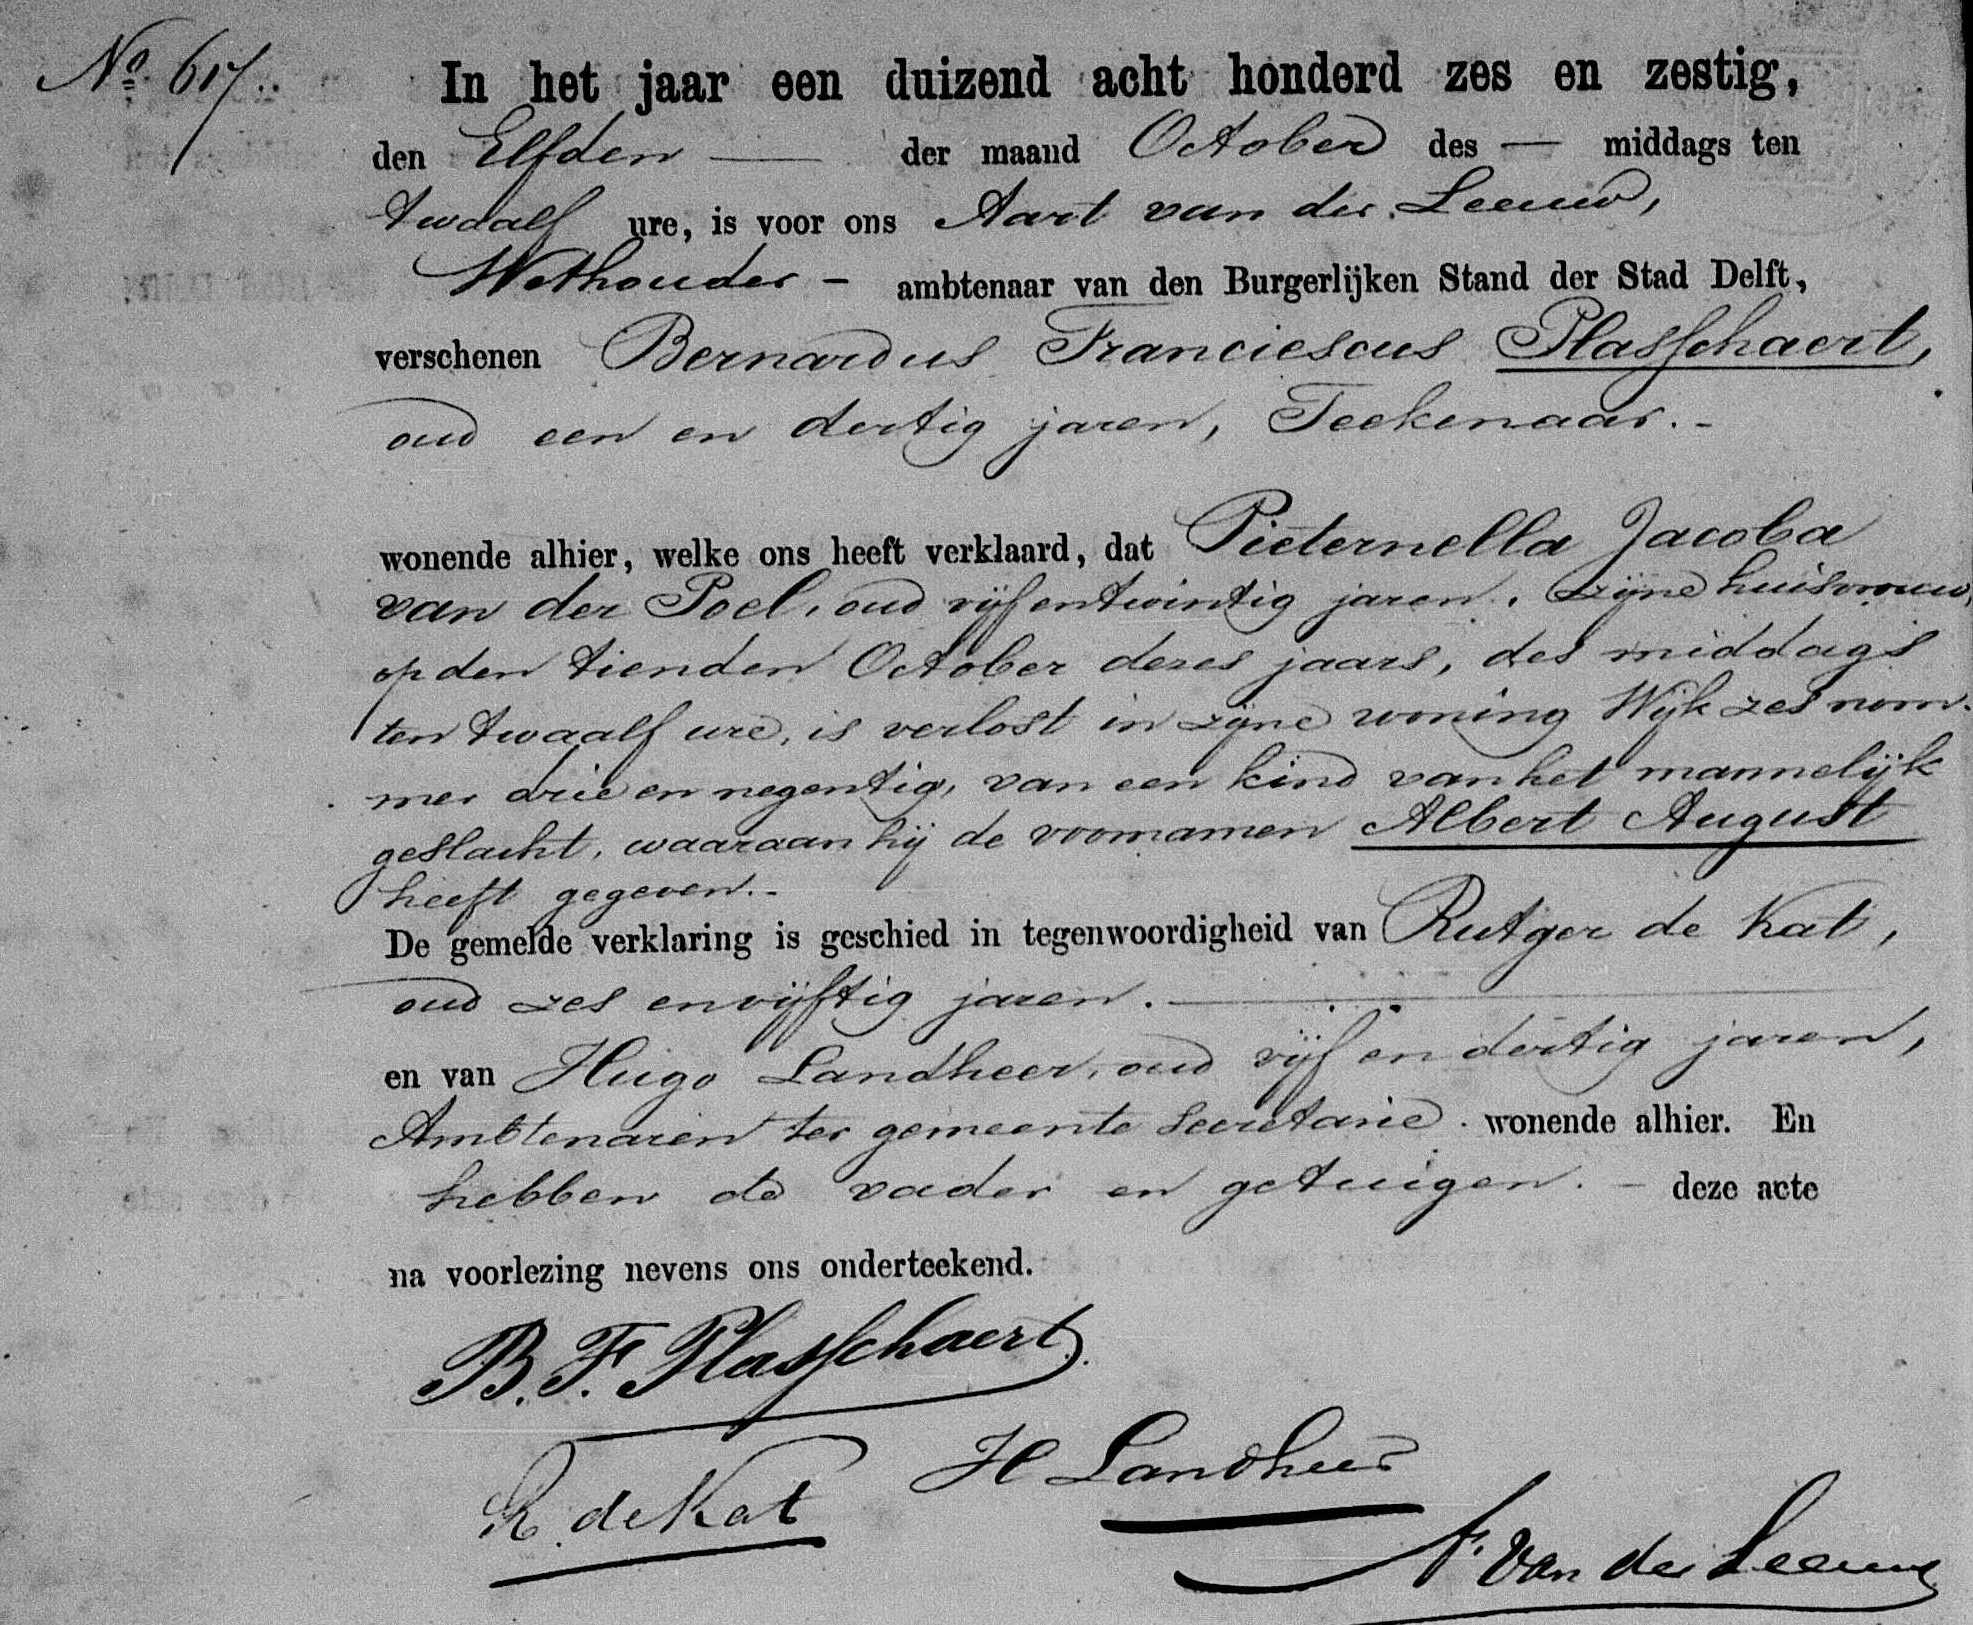 No. 617.
In het jaar een duizend acht honderd zes en zestig,
den Elfden — der maand October des — middags ten
twaalf ure, is voor ons Aart van der Leeuw,
Wethouder - ambtenaar van den Burgerlijken Stand der Stad Delft,
verschenen Bernardus Franciescus Plasschaert,
oud een en dertig jaren, Teekenaar. -
wonende alhier, welke ons heeft verklaard, dat Pieternella Jacoba
van der Poel, oud vijfentwintig jaren, zijne huisvrouw,
op den tienden October dezes jaars, des middags
ten twaalf ure, is verlost in zijne woning Wijk zes nom-
mer drie en negentig, van een kind van het mannelijk
geslacht, waaraan hij de voornamen Albert August
heeft gegeven. -
De gemelde verklaring is geschied in tegenwoordigheid van Rutger de Kat,
oud zes en vijftig jaren. —
en van Hugo Landheer, oud vijf en dertig jaren,
Ambtenaren ter gemeente Secretarie. wonende alhier. En
hebben de vader en getuigen. - deze acte
na voorlezing nevens ons onderteekend.
B. F. Plasschaert.
H Landheer
R. de Kat
A. van der Leeuw